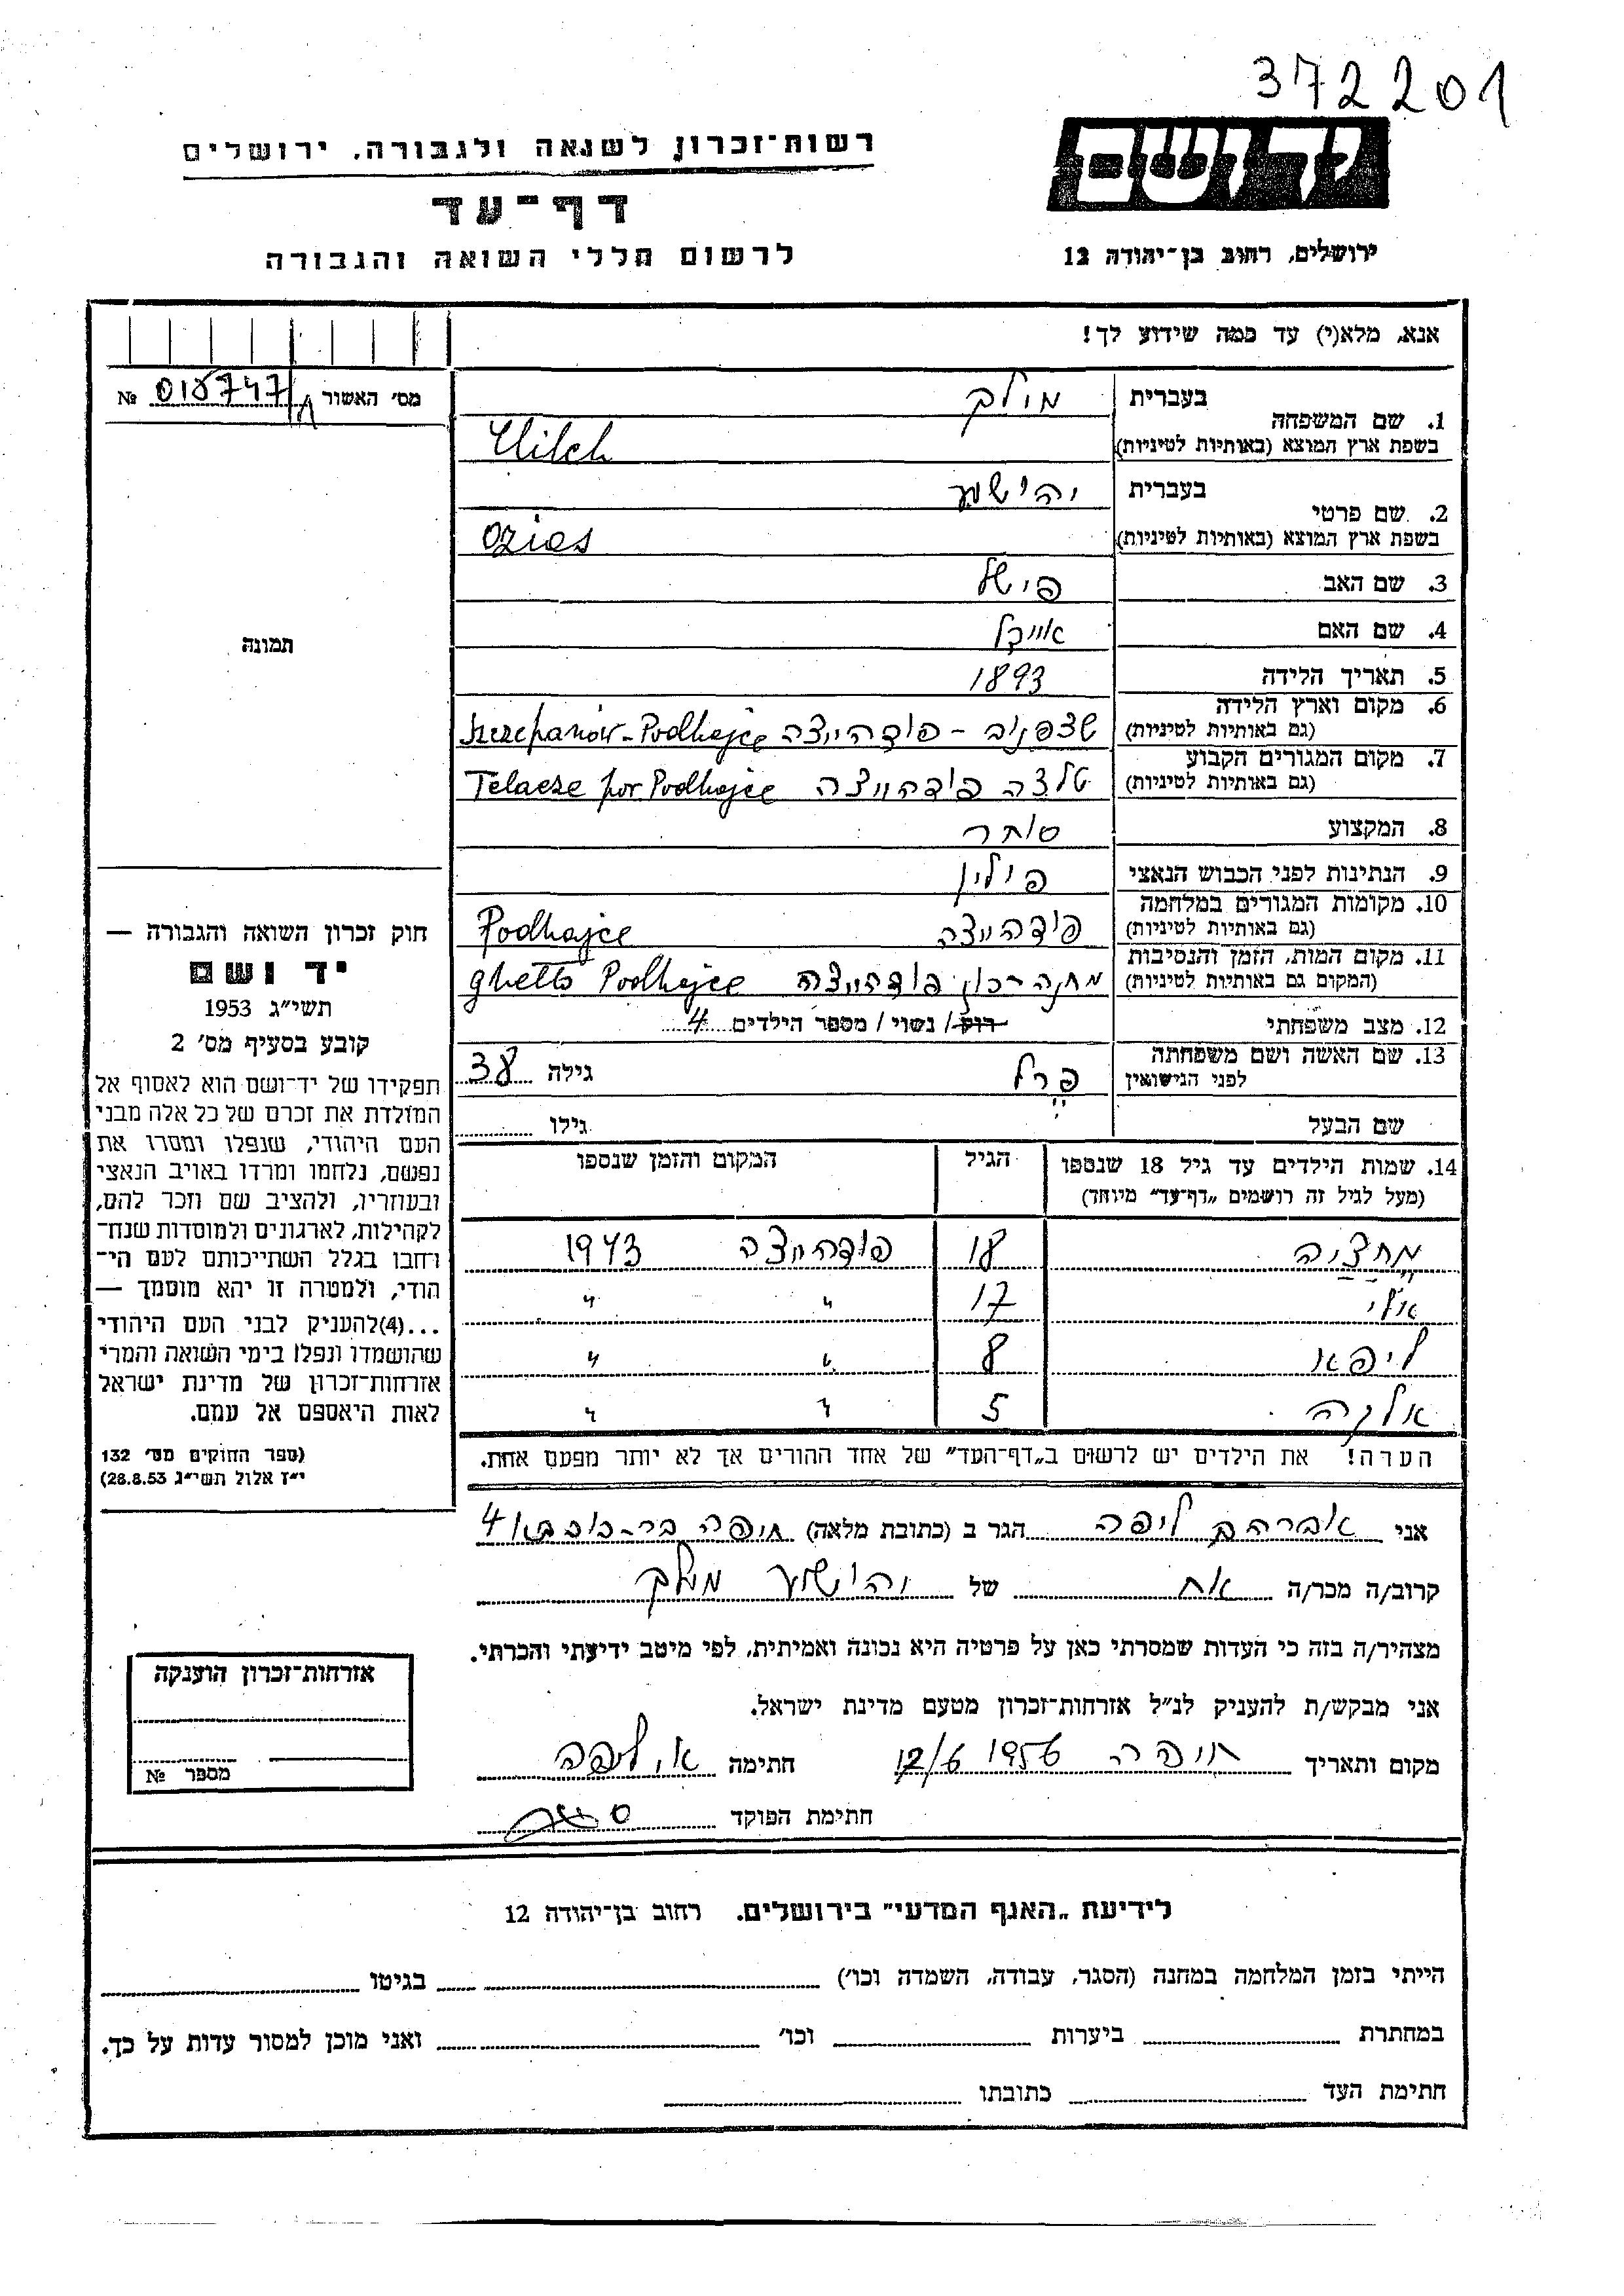 372201
יד ושם
רשות־זכרון לשואה ולגבורה, ירושלים
דף־עד
לרשום חללי השואה והגבורה
ירושלים, רחוב בן־יהודה 12
אנא, מלא(י) עד כמה שידוע לך!
מס׳ האשור № 
1. שם המשפחה
בעברית מילך
בשפת ארץ המוצא (באותיות לטיניות) Milch
2. שם פרטי
בעברית יהושע
בשפת ארץ המוצא (באותיות לטיניות) Ozias
3. שם האב פישל
4. שם האם
5. תאריך הלידה 1893
6. מקום וארץ הלידה
(גם באותיות לטיניות) שצפנוב - פודהייצה Szczepanów-Podhajce
7. מקום המגורים הקבוע
(גם באותיות לטיניות) טלצה פודהייצה Telacze por Podhajce
8. המקצוע סוחר
9. הנתינות לפני הכבוש הנאצי פולין
10. מקומות המגורים במלחמה
(גם באותיות לטיניות) פודהייצה Podhajce
11. מקום המות, הזמן והנסיבות
(המקום גם באותיות לטיניות) מחנה רכוז פודהייצה ghetto Podhajce
12. מצב משפחתי רוק/ נשוי / מספר הילדים 4
13. שם האשה ושם משפחתה
לפני הנישואין פרל גילה 38
שם הבעל גילו
14. שמות הילדים עד גיל 18 שנספו
(מעל לגיל זה רושמים „דף־עד” מיוחד)
הגיל
המקום והזמן שנספו
18 פודהייצה 1943
17 " "
ליפא 8 " "
אלקה 5 " "
הערה! את הילדים יש לרשום ב„דף־העד” של אחד ההורים אך לא יותר מפעם אחת.
תמונה
חוק זכרון השואה והגבורה —
יד ושם
תשי״ג 1953
קובע בסעיף מס׳ 2
תפקידו של יד־ושם הוא לאסוף אל
המולדת את זכרם של כל אלה מבני
העם היהודי, שנפלו ומסרו את
נפשם, נלחמו ומרדו באויב הנאצי
ובעוזריו, ולהציב שם וזכר להם,
לקהילות, לארגונים ולמוסדות שנח־
רחבו בגלל השתייכותם לעם הי־
הודי, ולמטרה זו יהא מוסמך —
...(4)להעניק לבני העם היהודי
שהושמדו ונפלו בימי השואה והמרי
אזרחות־זכרון של מדינת ישראל
לאות היאספם אל עמם.
(ספר החוקים מס׳ 132
י״ז אלול תשי״ג 28.8.53)
אני אברהם ליפה הגר ב (כתובת מלאה) חיפה בר-כוכבא 4
קרוב/ה מכר/ה אח של יהושע מילך
מצהיר/ה בזה כי העדות שמסרתי כאן על פרטיה היא נכונה ואמיתית, לפי מיטב ידיעתי והכרתי.
אני מבקש/ת להעניק לנ״ל אזרחות־זכרון מטעם מדינת ישראל.
מקום ותאריך חיפה 1956 12/6 חתימה א. ליפה
חתימת הפוקד
אזרחות־זכרון הוענקה
מספר №
לידיעת „האגף המדעי” בירושלים. רחוב בן־יהודה 12
הייתי בזמן המלחמה במחנה (הסגר, עבודה, השמדה וכו׳) בגיטו
במחתרת ביערות וכו׳ ואני מוכן למסור עדות על כך.
חתימת העד כתובתו